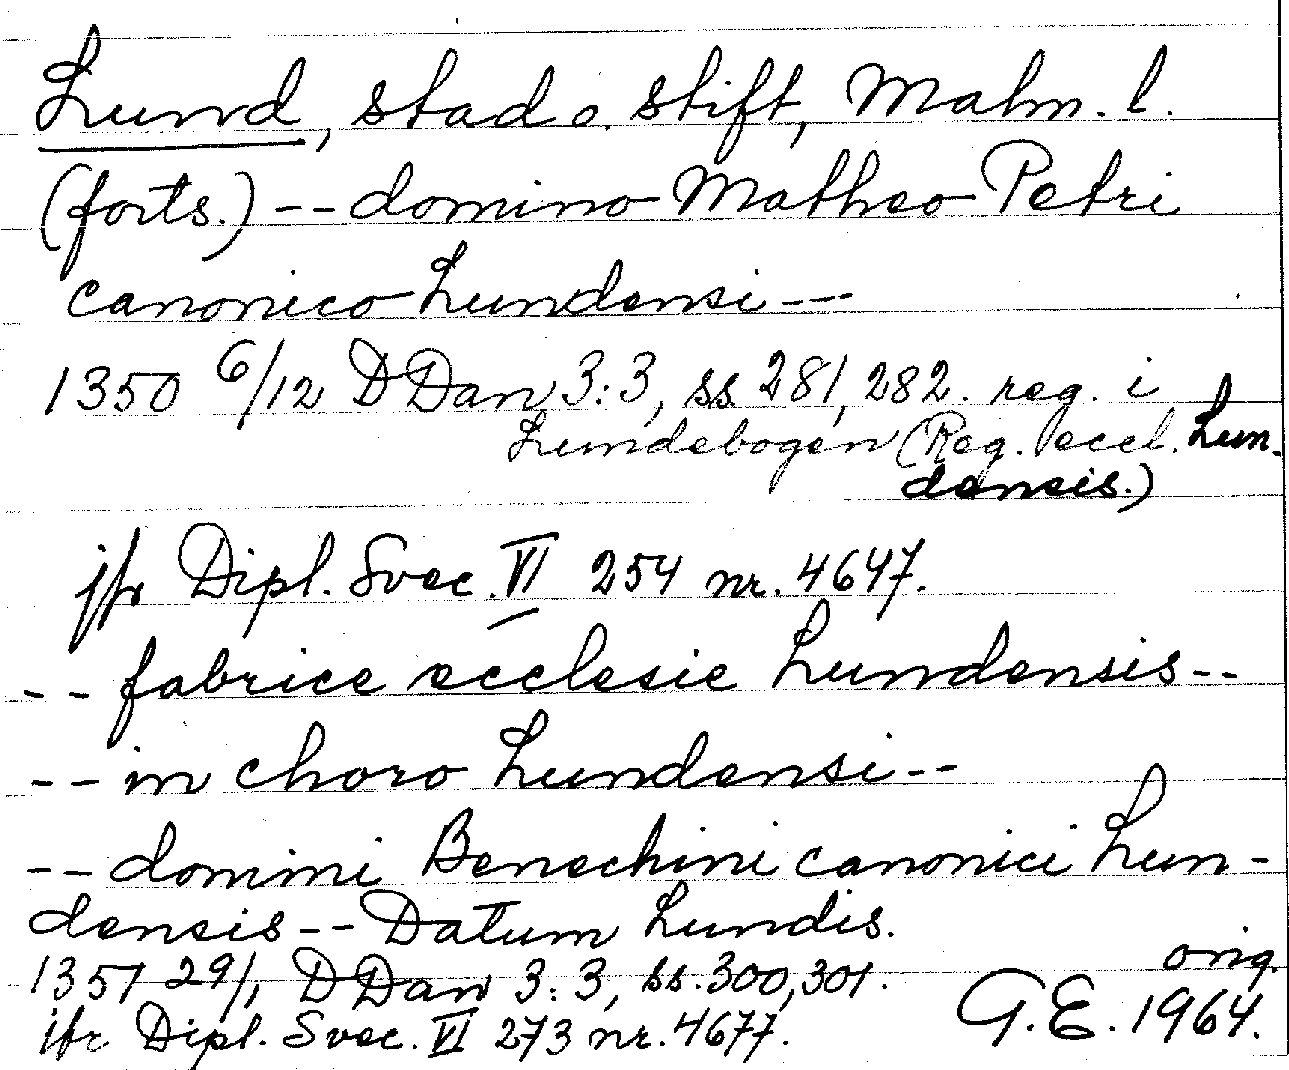 Lund, stad o. stift, Malm. l.
(forts.) -- domino Matheo Petri
canonico Lundensi ---
1350 6/12 DDan 3:3, ss. 281, 282. reg. i
Lundebogen (Reg. eccl. Lun-
densis.)
jfr Dipl. Svec. VI 254 nr. 4647.
-- fabrice ecclesie Lundensis --
-- in choro Lundensi --
-- domini Benechini canonici Lun-
densis -- Datum Lundis.
1351 29/1 DDan 3:3, ss. 300, 301. orig.
jfr Dipl. Svec. VI 273 nr. 4677. G.E. 1964.